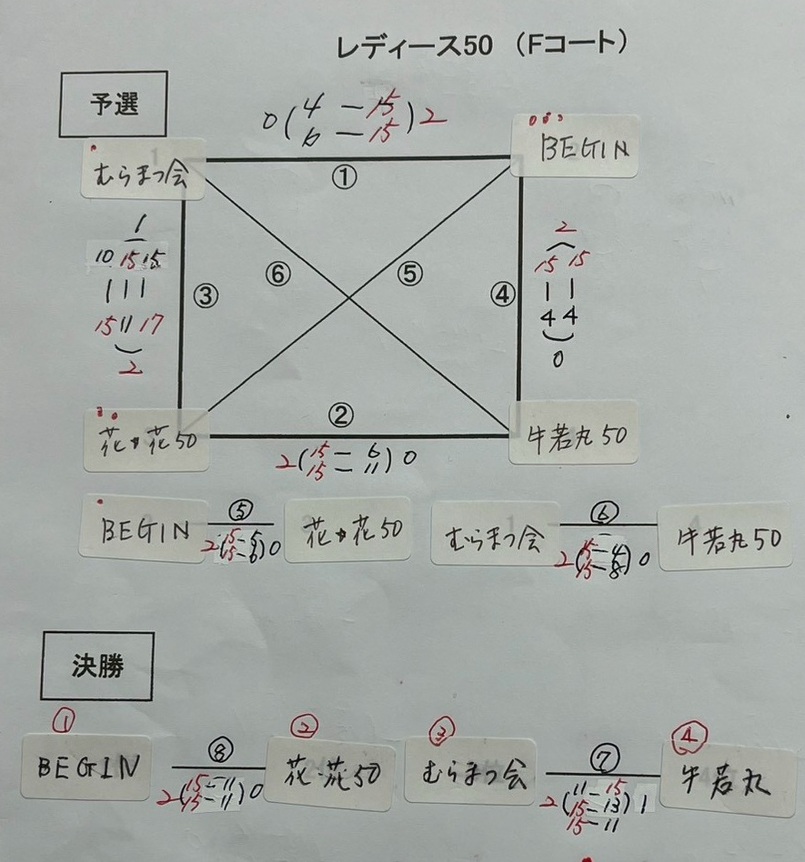 レディース50 (Fコート)
予選
0(4－15)2
6－15
むらまつ会
BEGIN
①
1
10 15 15
| | |
15 11 17
2
③
⑥
⑤
④
2
15 15
| |
4 4
0
花・花50
②
牛若丸50
2(15－6)0
15－11
BEGIN ⑤ 花・花50
2(15－5)0
15－6
むらまつ会 ⑥ 牛若丸50
2(15－4)0
15－8
決勝
① ② ③ ④
BEGIN ⑧ 花・花50
2(15－11)0
15－11
むらまつ会 ⑦ 牛若丸
11－15
2(15－13)1
15－11